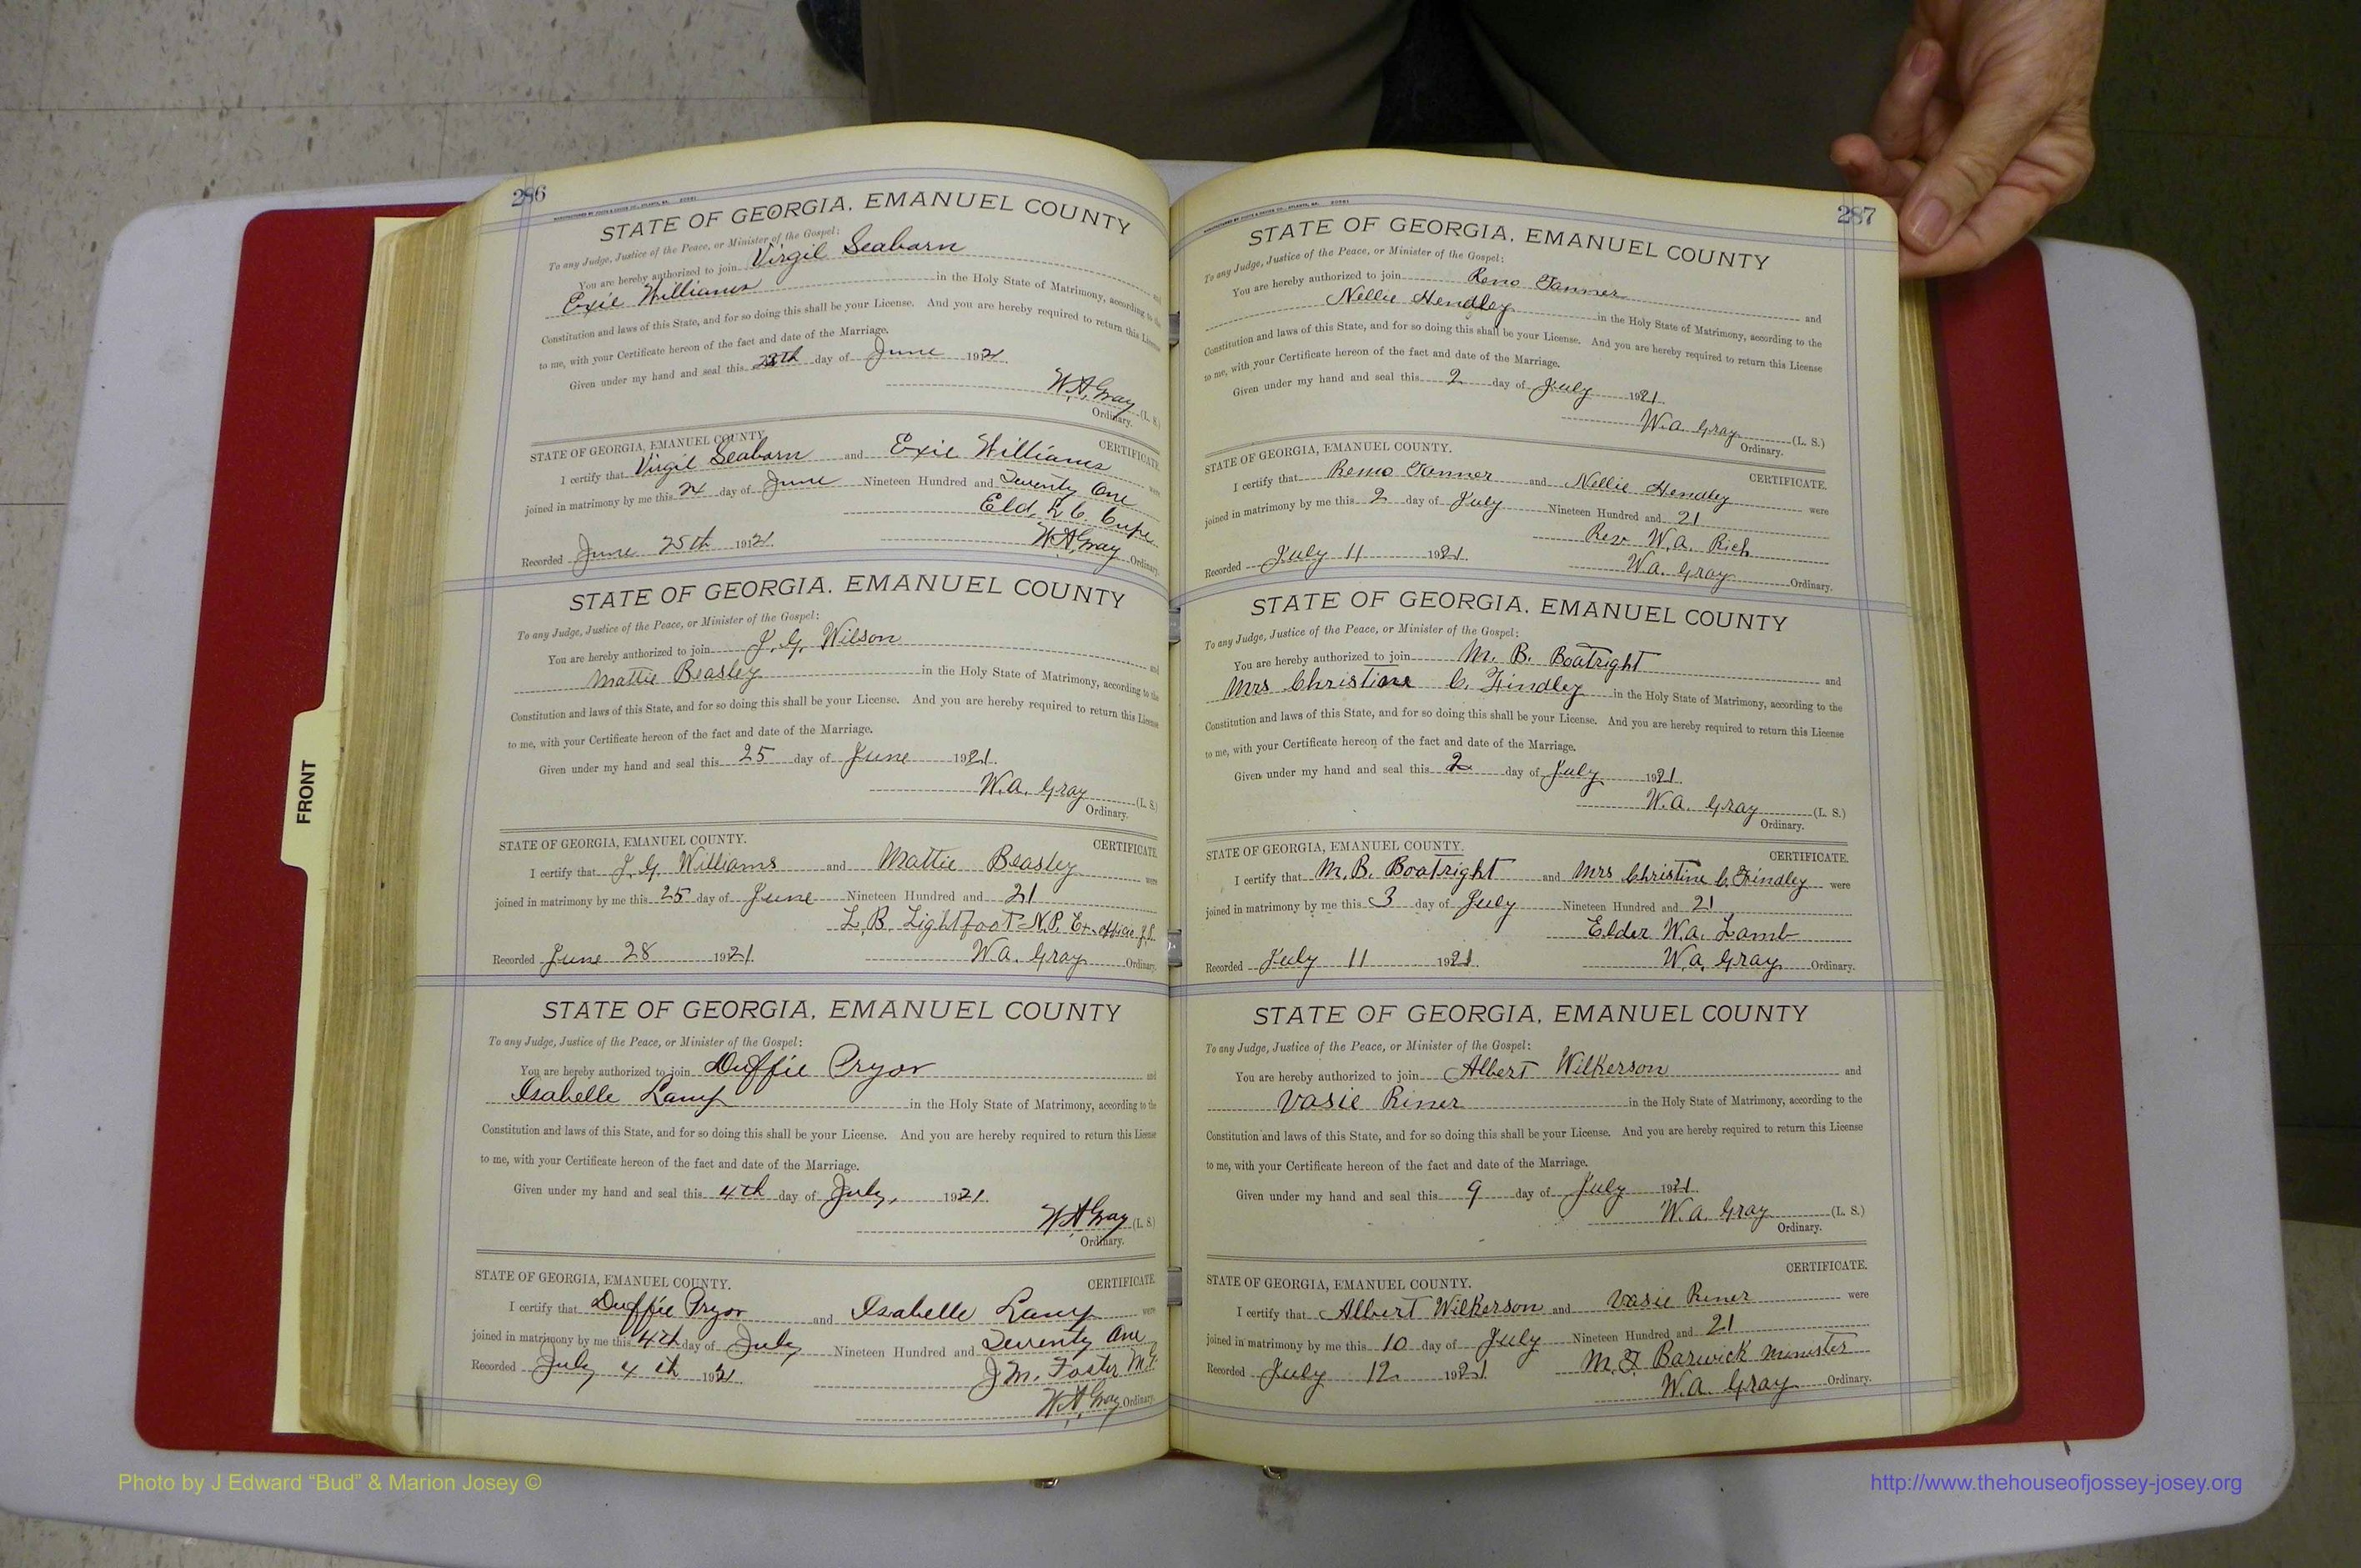 286
STATE OF GEORGIA, EMANUEL COUNTY
To any Judge, Justice of the Peace, or Minister of the Gospel:
You are hereby authorized to join Virgil Seaborn and
Exie Williams in the Holy State of Matrimony, according to the
Constitution and laws of this State, and for so doing this shall be your License. And you are hereby required to return this License
to me, with your Certificate hereon of the fact and date of the Marriage.
Given under my hand and seal this day of June 1921.
W.A. Gray (L. S.)
Ordinary.
STATE OF GEORGIA, EMANUEL COUNTY. CERTIFICATE.
I certify that Virgil Seaborn and Exie Williams were
joined in matrimony by me this 24 day of June Nineteen Hundred and Twenty One
Eld. L C.
Recorded June 25th 1921. W.A. Gray Ordinary.
STATE OF GEORGIA, EMANUEL COUNTY
To any Judge, Justice of the Peace, or Minister of the Gospel:
You are hereby authorized to join J. G. Wilson and
Mattie Beasley in the Holy State of Matrimony, according to the
Constitution and laws of this State, and for so doing this shall be your License. And you are hereby required to return this License
to me, with your Certificate hereon of the fact and date of the Marriage.
Given under my hand and seal this 25 day of June 1921.
W.A. Gray (L. S.)
Ordinary.
STATE OF GEORGIA, EMANUEL COUNTY. CERTIFICATE.
I certify that J. G. Williams and Mattie Beasley were
joined in matrimony by me this 25 day of June Nineteen Hundred and 21
L. B. Lightfoot N.P. Ex officio J.P.
Recorded June 28 1921. W.A. Gray Ordinary.
STATE OF GEORGIA, EMANUEL COUNTY
To any Judge, Justice of the Peace, or Minister of the Gospel:
You are hereby authorized to join Duffie Pryor and
Isabelle Lamp in the Holy State of Matrimony, according to the
Constitution and laws of this State, and for so doing this shall be your License. And you are hereby required to return this License
to me, with your Certificate hereon of the fact and date of the Marriage.
Given under my hand and seal this 4th day of July, 1921.
W.A. Gray (L. S.)
Ordinary.
STATE OF GEORGIA, EMANUEL COUNTY. CERTIFICATE.
I certify that Duffie Pryor and Isabelle Lamp were
joined in matrimony by me this 4th day of July Nineteen Hundred and Twenty One
J. M. Foster M.G.
Recorded July 4th 1921. W.A. Gray Ordinary.
287
STATE OF GEORGIA, EMANUEL COUNTY
To any Judge, Justice of the Peace, or Minister of the Gospel:
You are hereby authorized to join Reno Tanner and
Nellie Hendley in the Holy State of Matrimony, according to the
Constitution and laws of this State, and for so doing this shall be your License. And you are hereby required to return this License
to me, with your Certificate hereon of the fact and date of the Marriage.
Given under my hand and seal this 2 day of July 1921.
W.A. Gray (L. S.)
Ordinary.
STATE OF GEORGIA, EMANUEL COUNTY. CERTIFICATE.
I certify that Remo Tanner and Nellie Hendley were
joined in matrimony by me this 2 day of July Nineteen Hundred and 21
Rev W.A. Rich
Recorded July 11 1921. W.A. Gray Ordinary.
STATE OF GEORGIA, EMANUEL COUNTY
To any Judge, Justice of the Peace, or Minister of the Gospel:
You are hereby authorized to join M. B. Boatright and
Mrs Christine C. Findley in the Holy State of Matrimony, according to the
Constitution and laws of this State, and for so doing this shall be your License. And you are hereby required to return this License
to me, with your Certificate hereon of the fact and date of the Marriage.
Given under my hand and seal this 2 day of July 1921.
W.A. Gray (L. S.)
Ordinary.
STATE OF GEORGIA, EMANUEL COUNTY. CERTIFICATE.
I certify that M. B. Boatright and Mrs Christine C. Findley were
joined in matrimony by me this 3 day of July Nineteen Hundred and 21
Elder W.A. Lamb
Recorded July 11 1921. W.A. Gray Ordinary.
STATE OF GEORGIA, EMANUEL COUNTY
To any Judge, Justice of the Peace, or Minister of the Gospel:
You are hereby authorized to join Albert Wilkerson and
Vasie Riner in the Holy State of Matrimony, according to the
Constitution and laws of this State, and for so doing this shall be your License. And you are hereby required to return this License
to me, with your Certificate hereon of the fact and date of the Marriage.
Given under my hand and seal this 9 day of July 1921.
W.A. Gray (L. S.)
Ordinary.
STATE OF GEORGIA, EMANUEL COUNTY. CERTIFICATE.
I certify that Albert Wilkerson and Vasie Riner were
joined in matrimony by me this 10 day of July Nineteen Hundred and 21
M. F. Barwick Minister
Recorded July 12 1921. W.A. Gray Ordinary.
FRONT
Photo by J Edward “Bud” & Marion Josey ©
http://www.thehouseofjossey-josey.org